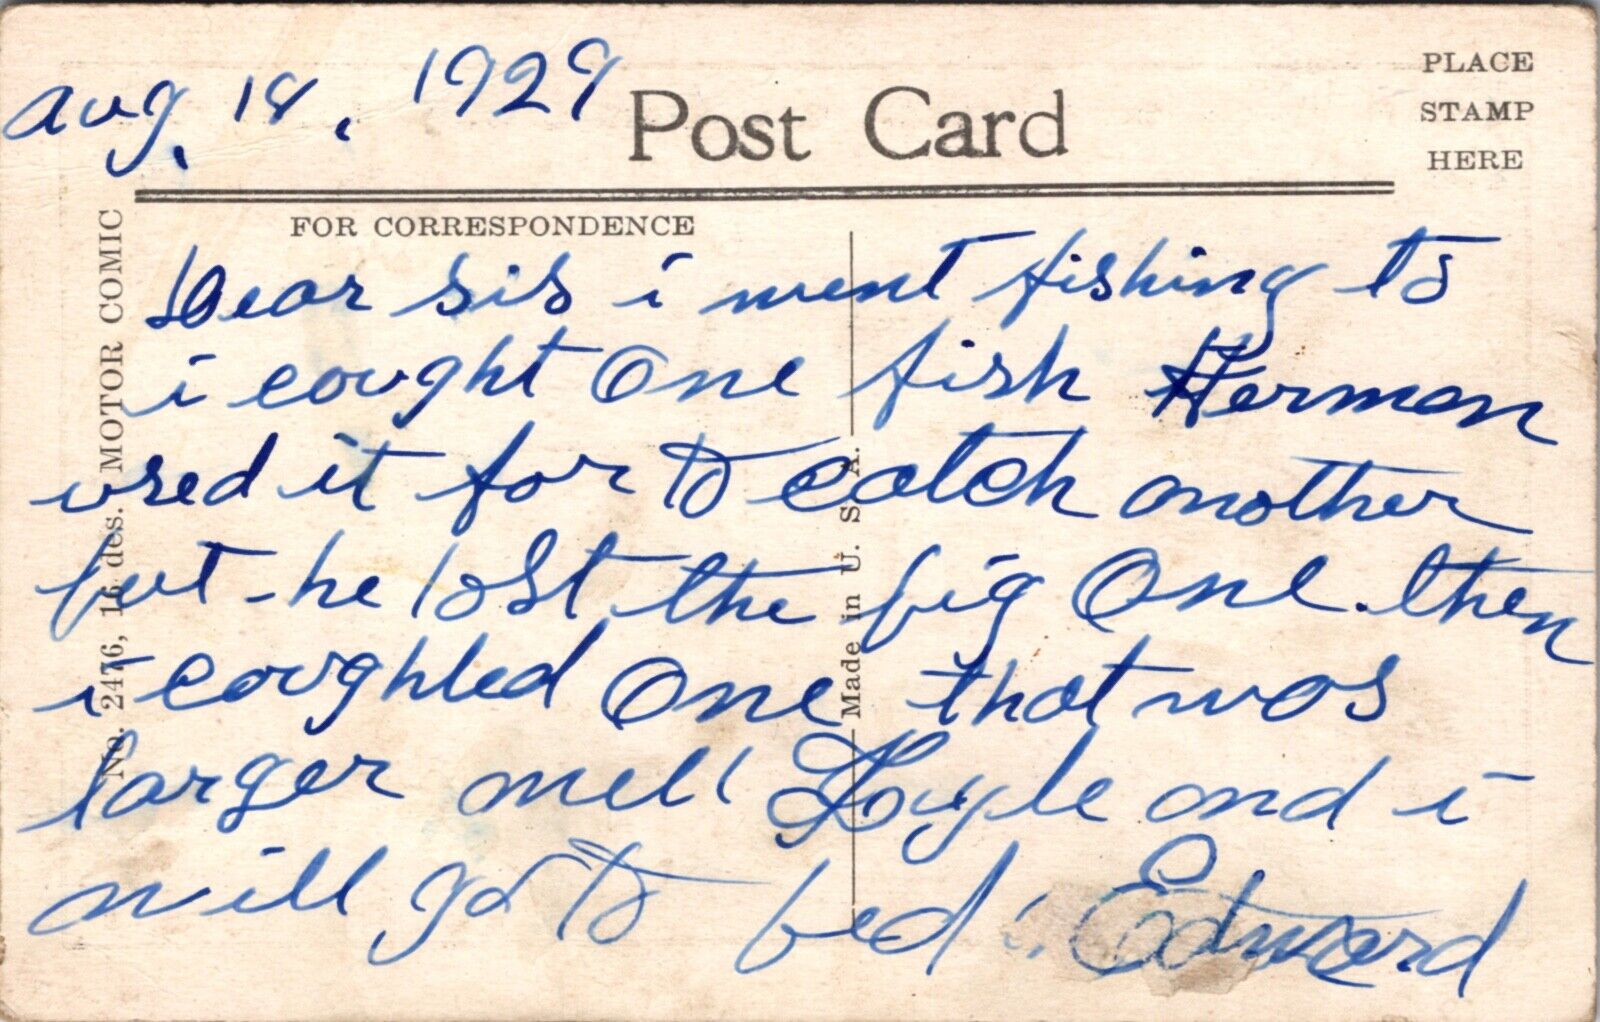 Aug. 18, 1929
Post Card
PLACE
STAMP
HERE
FOR CORRESPONDENCE
No. 2476, 16 des. MOTOR COMIC
Made in U. S. A.
Dear sis i went fishing to
i cought one fish Herman
used it for to catch another
but he lost the big one. then
i coughted one that was
larger well Loyle and i
will go to bed. Edward